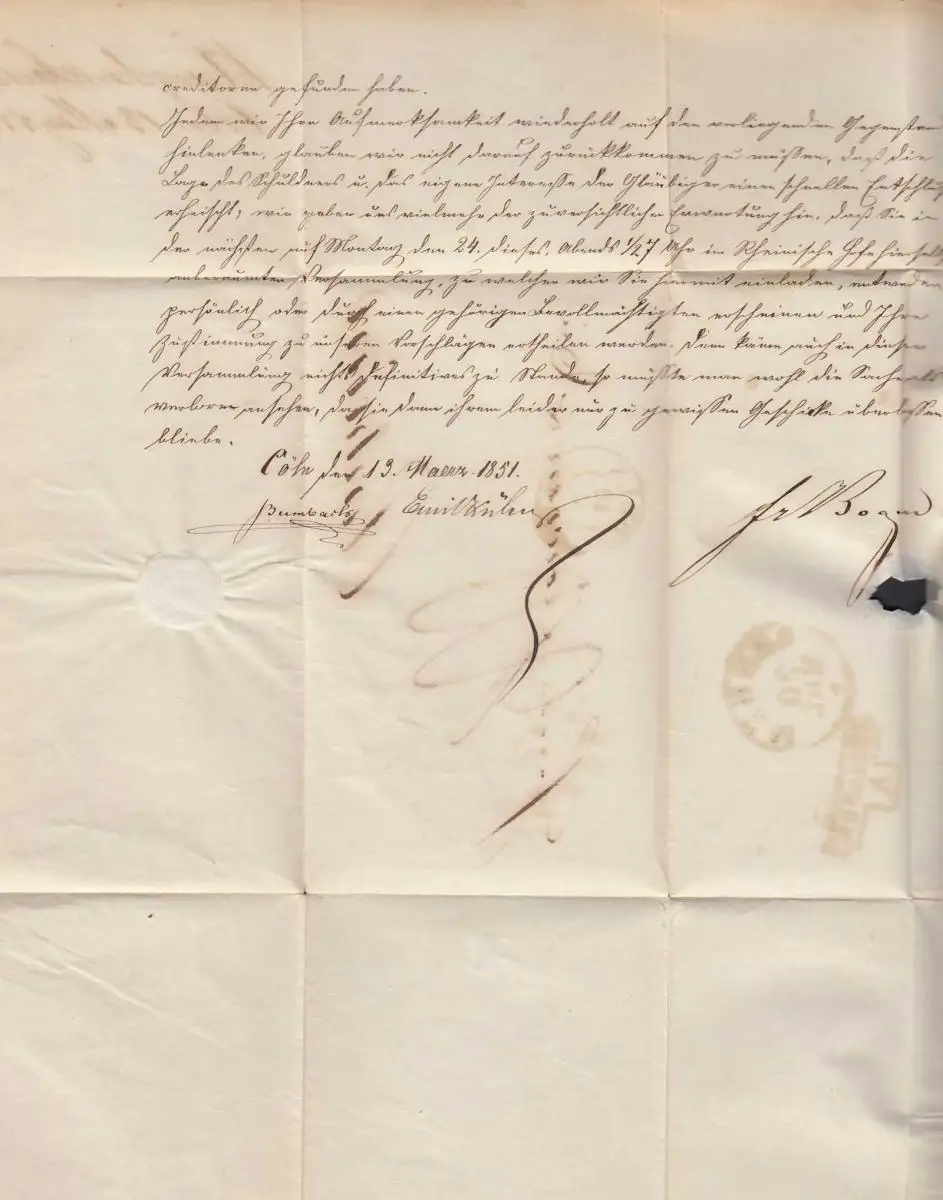 creditoren gefunden haben.
Indem wir Ihre Aufmerksamkeit wiederholt auf den vorliegenden Gegenstand
hinlenken, glauben wir nicht darauf zurückkommen zu müssen, daß die
Lage des Schuldners u. das eigene Interesse der Gläubiger einen schnellen Entschluß
erheischt; wir geben uns vielmehr der zuversichtlichen Erwartung hin, daß Sie in
der nächsten auf Montag den 24. dieses, Abends 1/2 7 Uhr im Rheinischen Hofe hierselbst
anberaumten Versammlung, zu welcher wir Sie hiermit einladen, entweder
persönlich oder durch einen gehörigen Bevollmächtigten erscheinen und Ihre
Zustimmung zu unseren Vorschlägen ertheilen werden. Denn käme auch in dieser
Versammlung nichts Definitives zu Stande, so müßte man wohl die Sache als
verloren ansehen, da sie dann ihrem leider nur zu gewissen Geschicke überlassen
bliebe.
Cöln den 13. Maerz 1851.